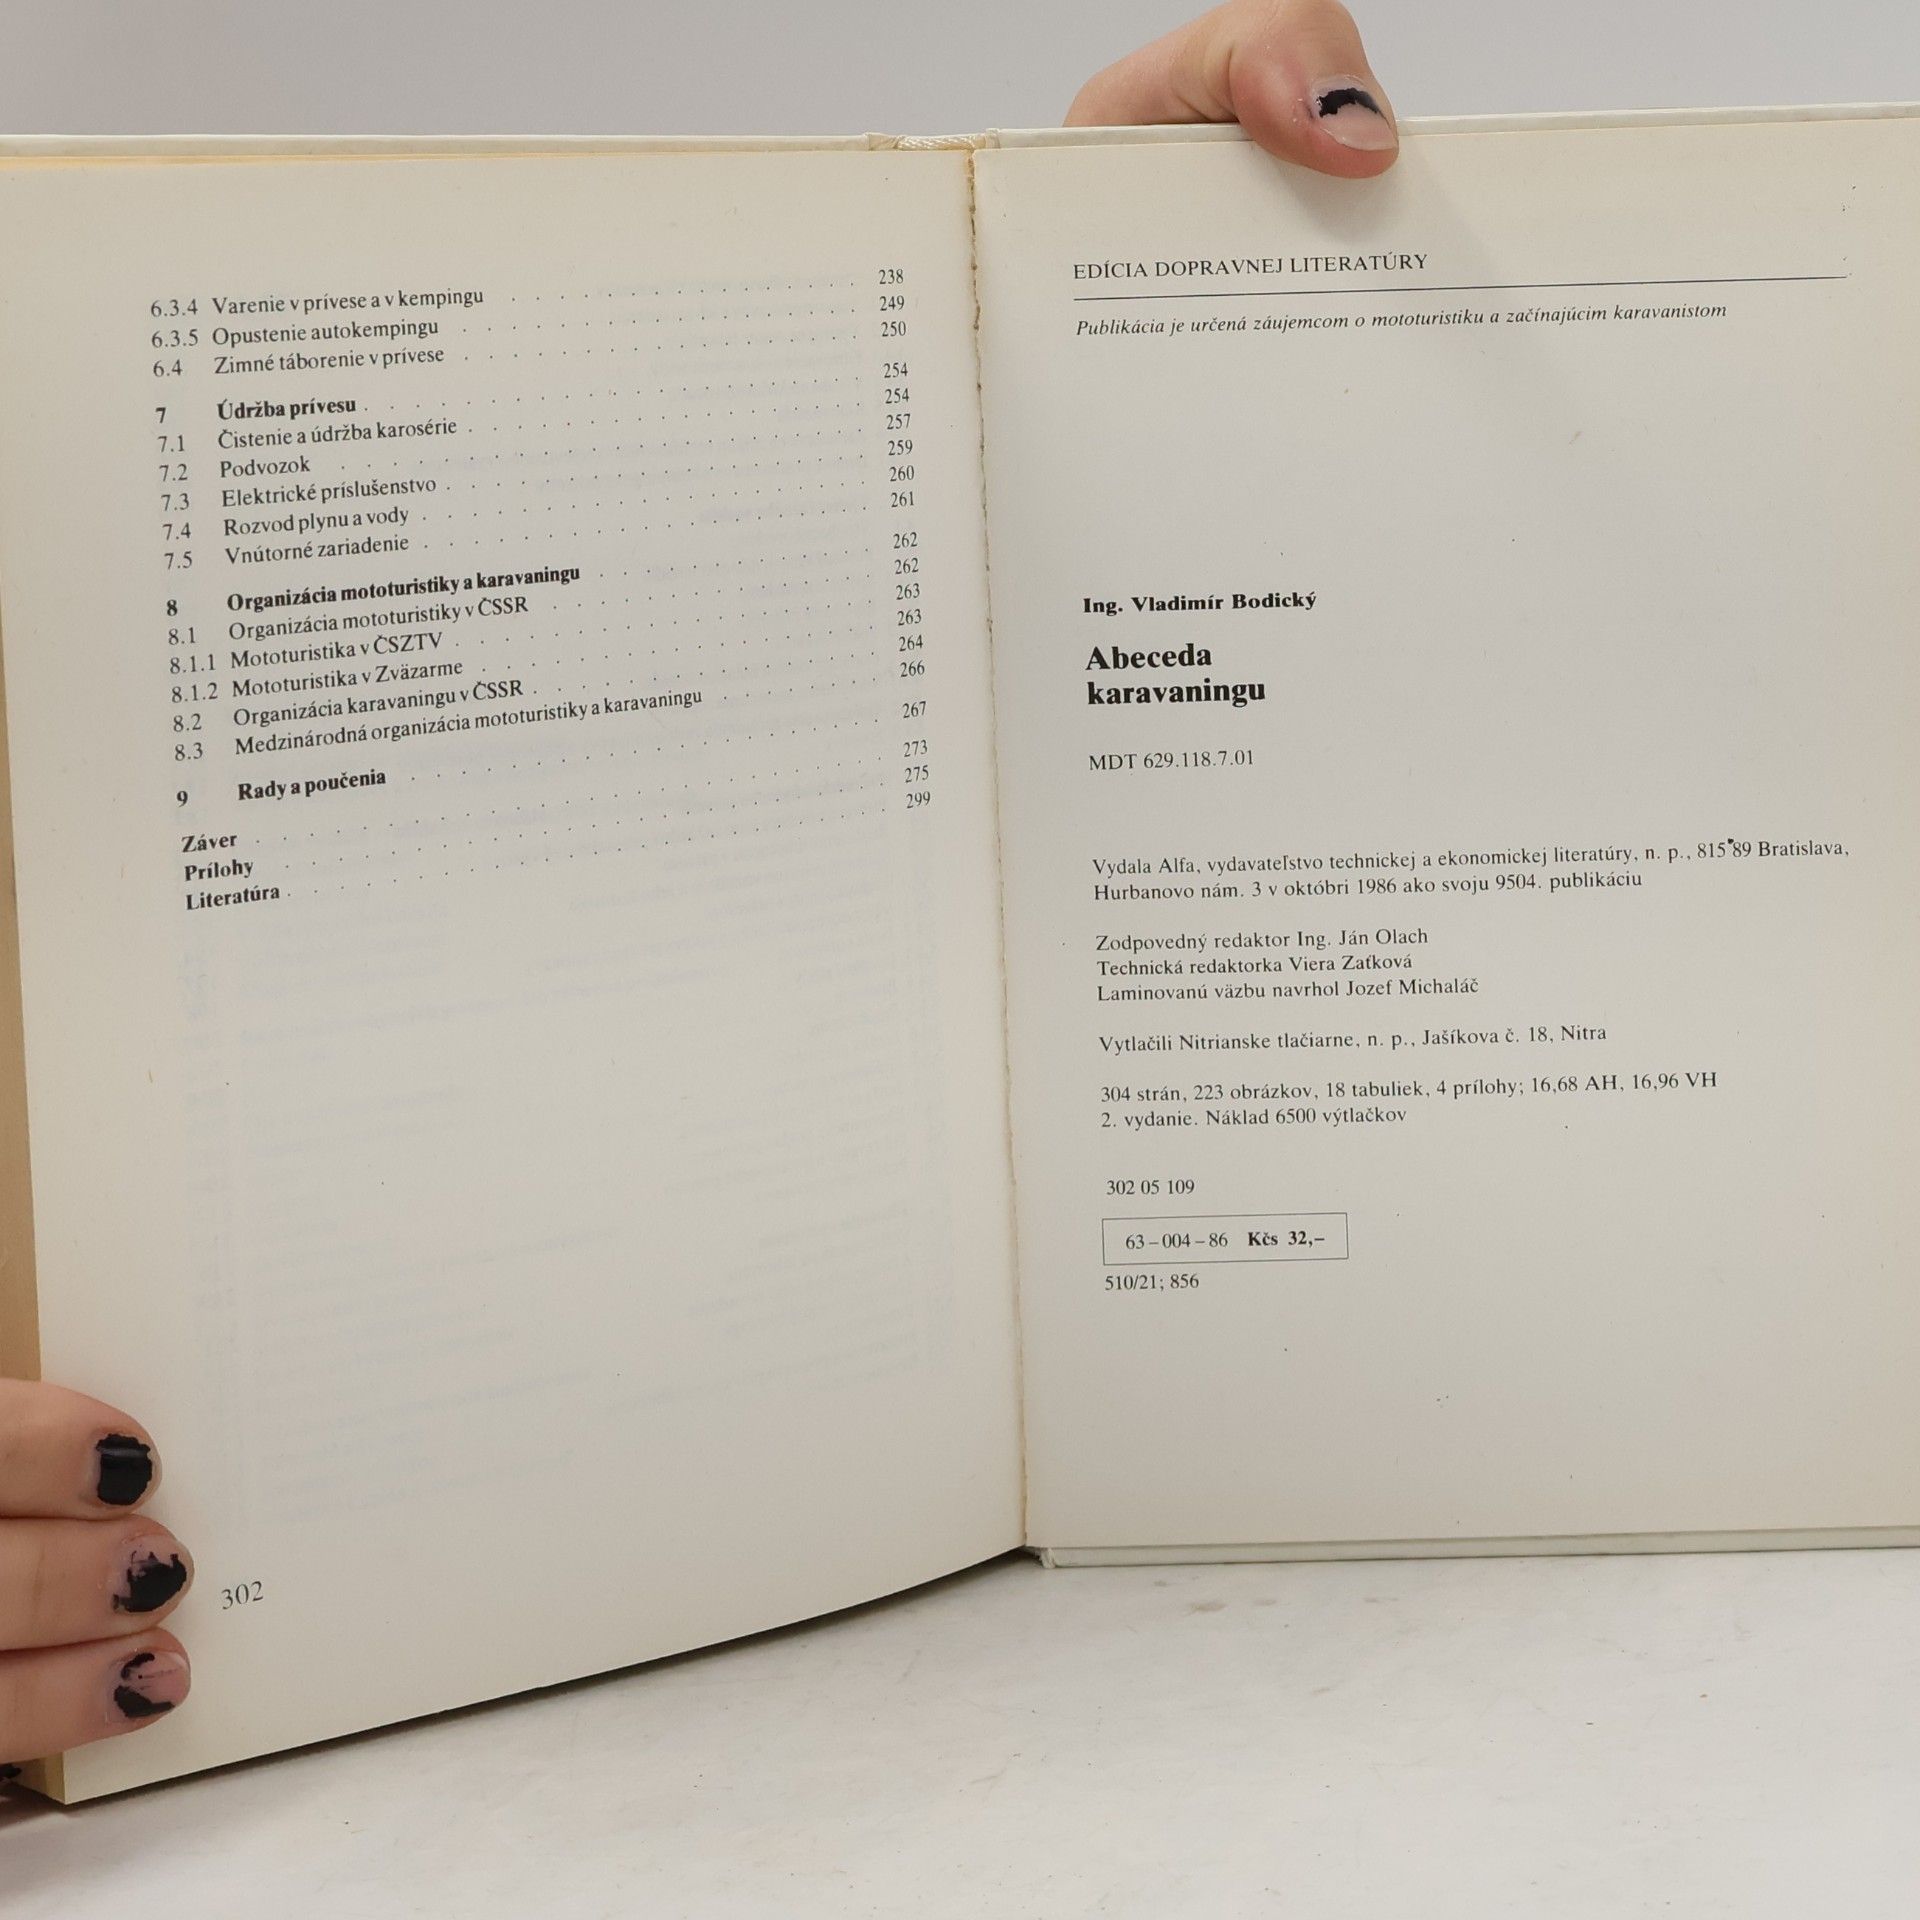 6.3.4 Varenie v prívese a v kempingu . . . . . . . . . . . . . . 238
6.3.5 Opustenie autokempingu . . . . . . . . . . . . . . . 249
6.4 Zimné táborenie v prívese . . . . . . . . . . . . . . . 250
7 Údržba prívesu . . . . . . . . . . . . . . . . . . . 254
7.1 Čistenie a údržba karosérie . . . . . . . . . . . . . . . 254
7.2 Podvozok . . . . . . . . . . . . . . . . . . . 257
7.3 Elektrické príslušenstvo . . . . . . . . . . . . . . . . 259
7.4 Rozvod plynu a vody . . . . . . . . . . . . . . . . . 260
7.5 Vnútorné zariadenie . . . . . . . . . . . . . . . . . 261
8 Organizácia mototuristiky a karavaningu . . . . . . . . . . . 262
8.1 Organizácia mototuristiky v ČSSR . . . . . . . . . . . . 262
8.1.1 Mototuristika v ČSZTV . . . . . . . . . . . . . . . . 263
8.1.2 Mototuristika v Zväzarme . . . . . . . . . . . . . . . 263
8.2 Organizácia karavaningu v ČSSR . . . . . . . . . . . . . 264
8.3 Medzinárodná organizácia mototuristiky a karavaningu . . . . . . 266
9 Rady a poučenia . . . . . . . . . . . . . . . . . . 267
Záver . . . . . . . . . . . . . . . . . . . . . . . 273
Prílohy . . . . . . . . . . . . . . . . . . . . . . 275
Literatúra . . . . . . . . . . . . . . . . . . . . . . 299
302
EDÍCIA DOPRAVNEJ LITERATÚRY
Publikácia je určená záujemcom o mototuristiku a začínajúcim karavanistom
Ing. Vladimír Bodický
Abeceda
karavaningu
MDT 629.118.7.01
Vydala Alfa, vydavateľstvo technickej a ekonomickej literatúry, n. p., 815 89 Bratislava,
Hurbanovo nám. 3 v októbri 1986 ako svoju 9504. publikáciu
Zodpovedný redaktor Ing. Ján Olach
Technická redaktorka Viera Zaťková
Laminovanú väzbu navrhol Jozef Michaláč
Vytlačili Nitrianske tlačiarne, n. p., Jašíkova č. 18, Nitra
304 strán, 223 obrázkov, 18 tabuliek, 4 prílohy; 16,68 AH, 16,96 VH
2. vydanie. Náklad 6500 výtlačkov
302 05 109
63 – 004 – 86 Kčs 32,–
510/21; 856